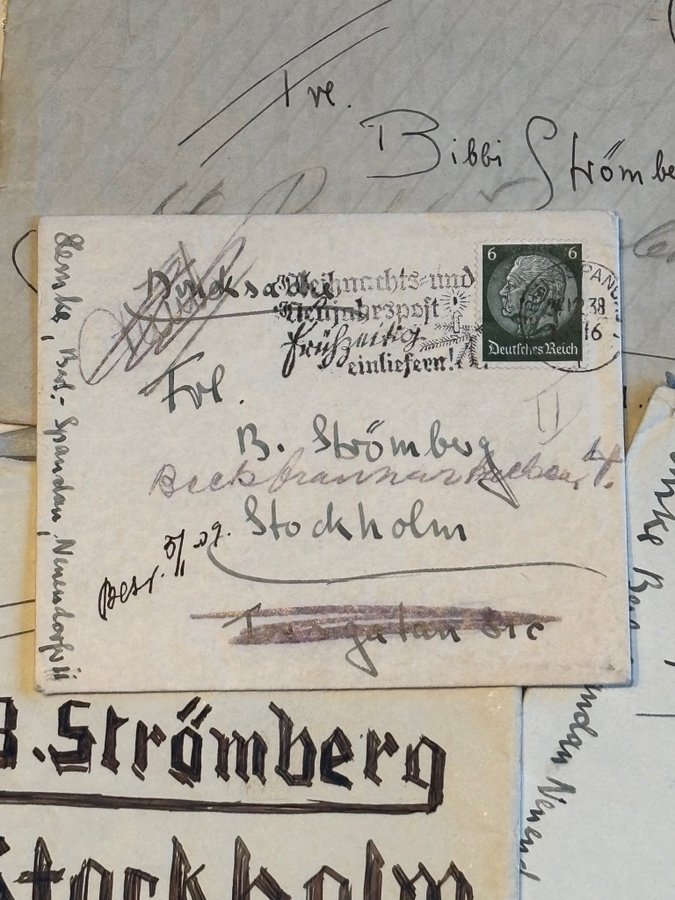 Frl.
Bibbi Strömbe
Lemke, Berl.-Spandau, Neuendorfs
Drucksache
Weihnachts- und
Neujahrspost
frühzeitig
einliefern!
6 6
Deutsches Reich
SPANDAU
12.38
16
Frl.
B. Strömberg
Stockholm
Besv. 3/1 39.
gatan
II
B. Strömberg
Stockholm